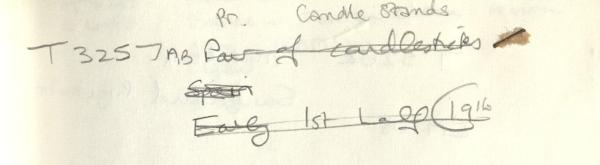 Pr. Candle Stands
T3257AB Pair of candlesticks
Spain
Early 1st half 19th